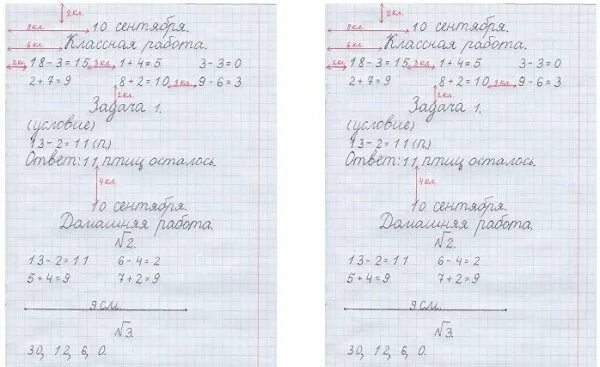 2 кл.
9кл. 10 сентября.
6кл. Классная работа.
2кл. 18-3=15 3кл. 1+4=5 3-3=0
2+7=9 8+2=10 3кл. 9-6=3
2кл.
Задача 1.
(условие)
13-2=11(п)
Ответ: 11 птиц осталось.
4 кл.
10 сентября.
Домашняя работа.
№2.
13-2=11 6-4=2
5+4=9 7+2=9
9 см.
№3.
30, 12, 6, 0.
2 кл.
9кл. 10 сентября.
6кл. Классная работа.
2кл. 18-3=15 3кл. 1+4=5 3-3=0
2+7=9 8+2=10 3кл. 9-6=3
2кл.
Задача 1.
(условие)
13-2=11(п)
Ответ: 11 птиц осталось.
4 кл.
10 сентября.
Домашняя работа.
№2.
13-2=11 6-4=2
5+4=9 7+2=9
9 см.
№3.
30, 12, 6, 0.